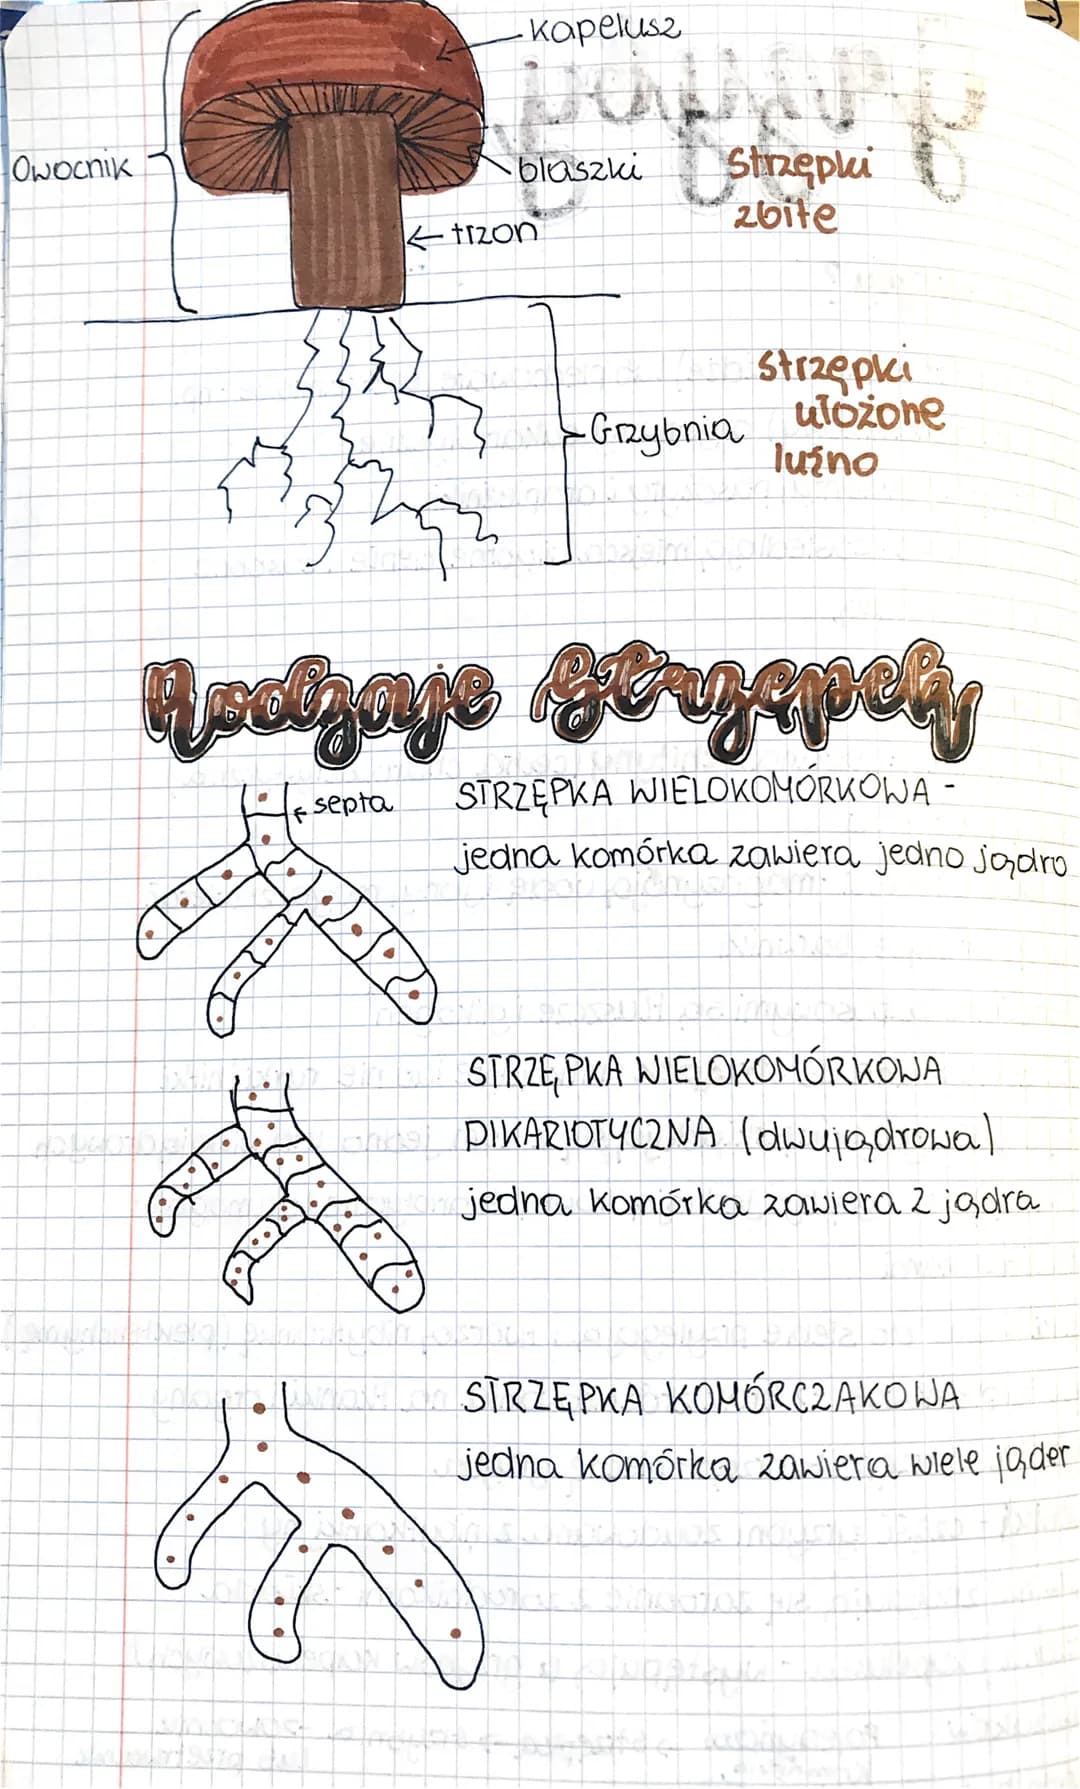 kapelusz
Owocnik
blaszki
trzon
Strzępki
zbite
Grzybnia
Strzępki
ułożone
luźno
Rodzaje Strzępek
septa
STRZĘPKA WIELOKOMÓRKOWA -
jedna komórka zawiera jedno jądro
STRZĘPKA WIELOKOMÓRKOWA
DIKARIOTYCZNA (dwujądrowa)
jedna komórka zawiera 2 jądra
STRZĘPKA KOMÓRCZAKOWA
jedna komórka zawiera wiele jąder